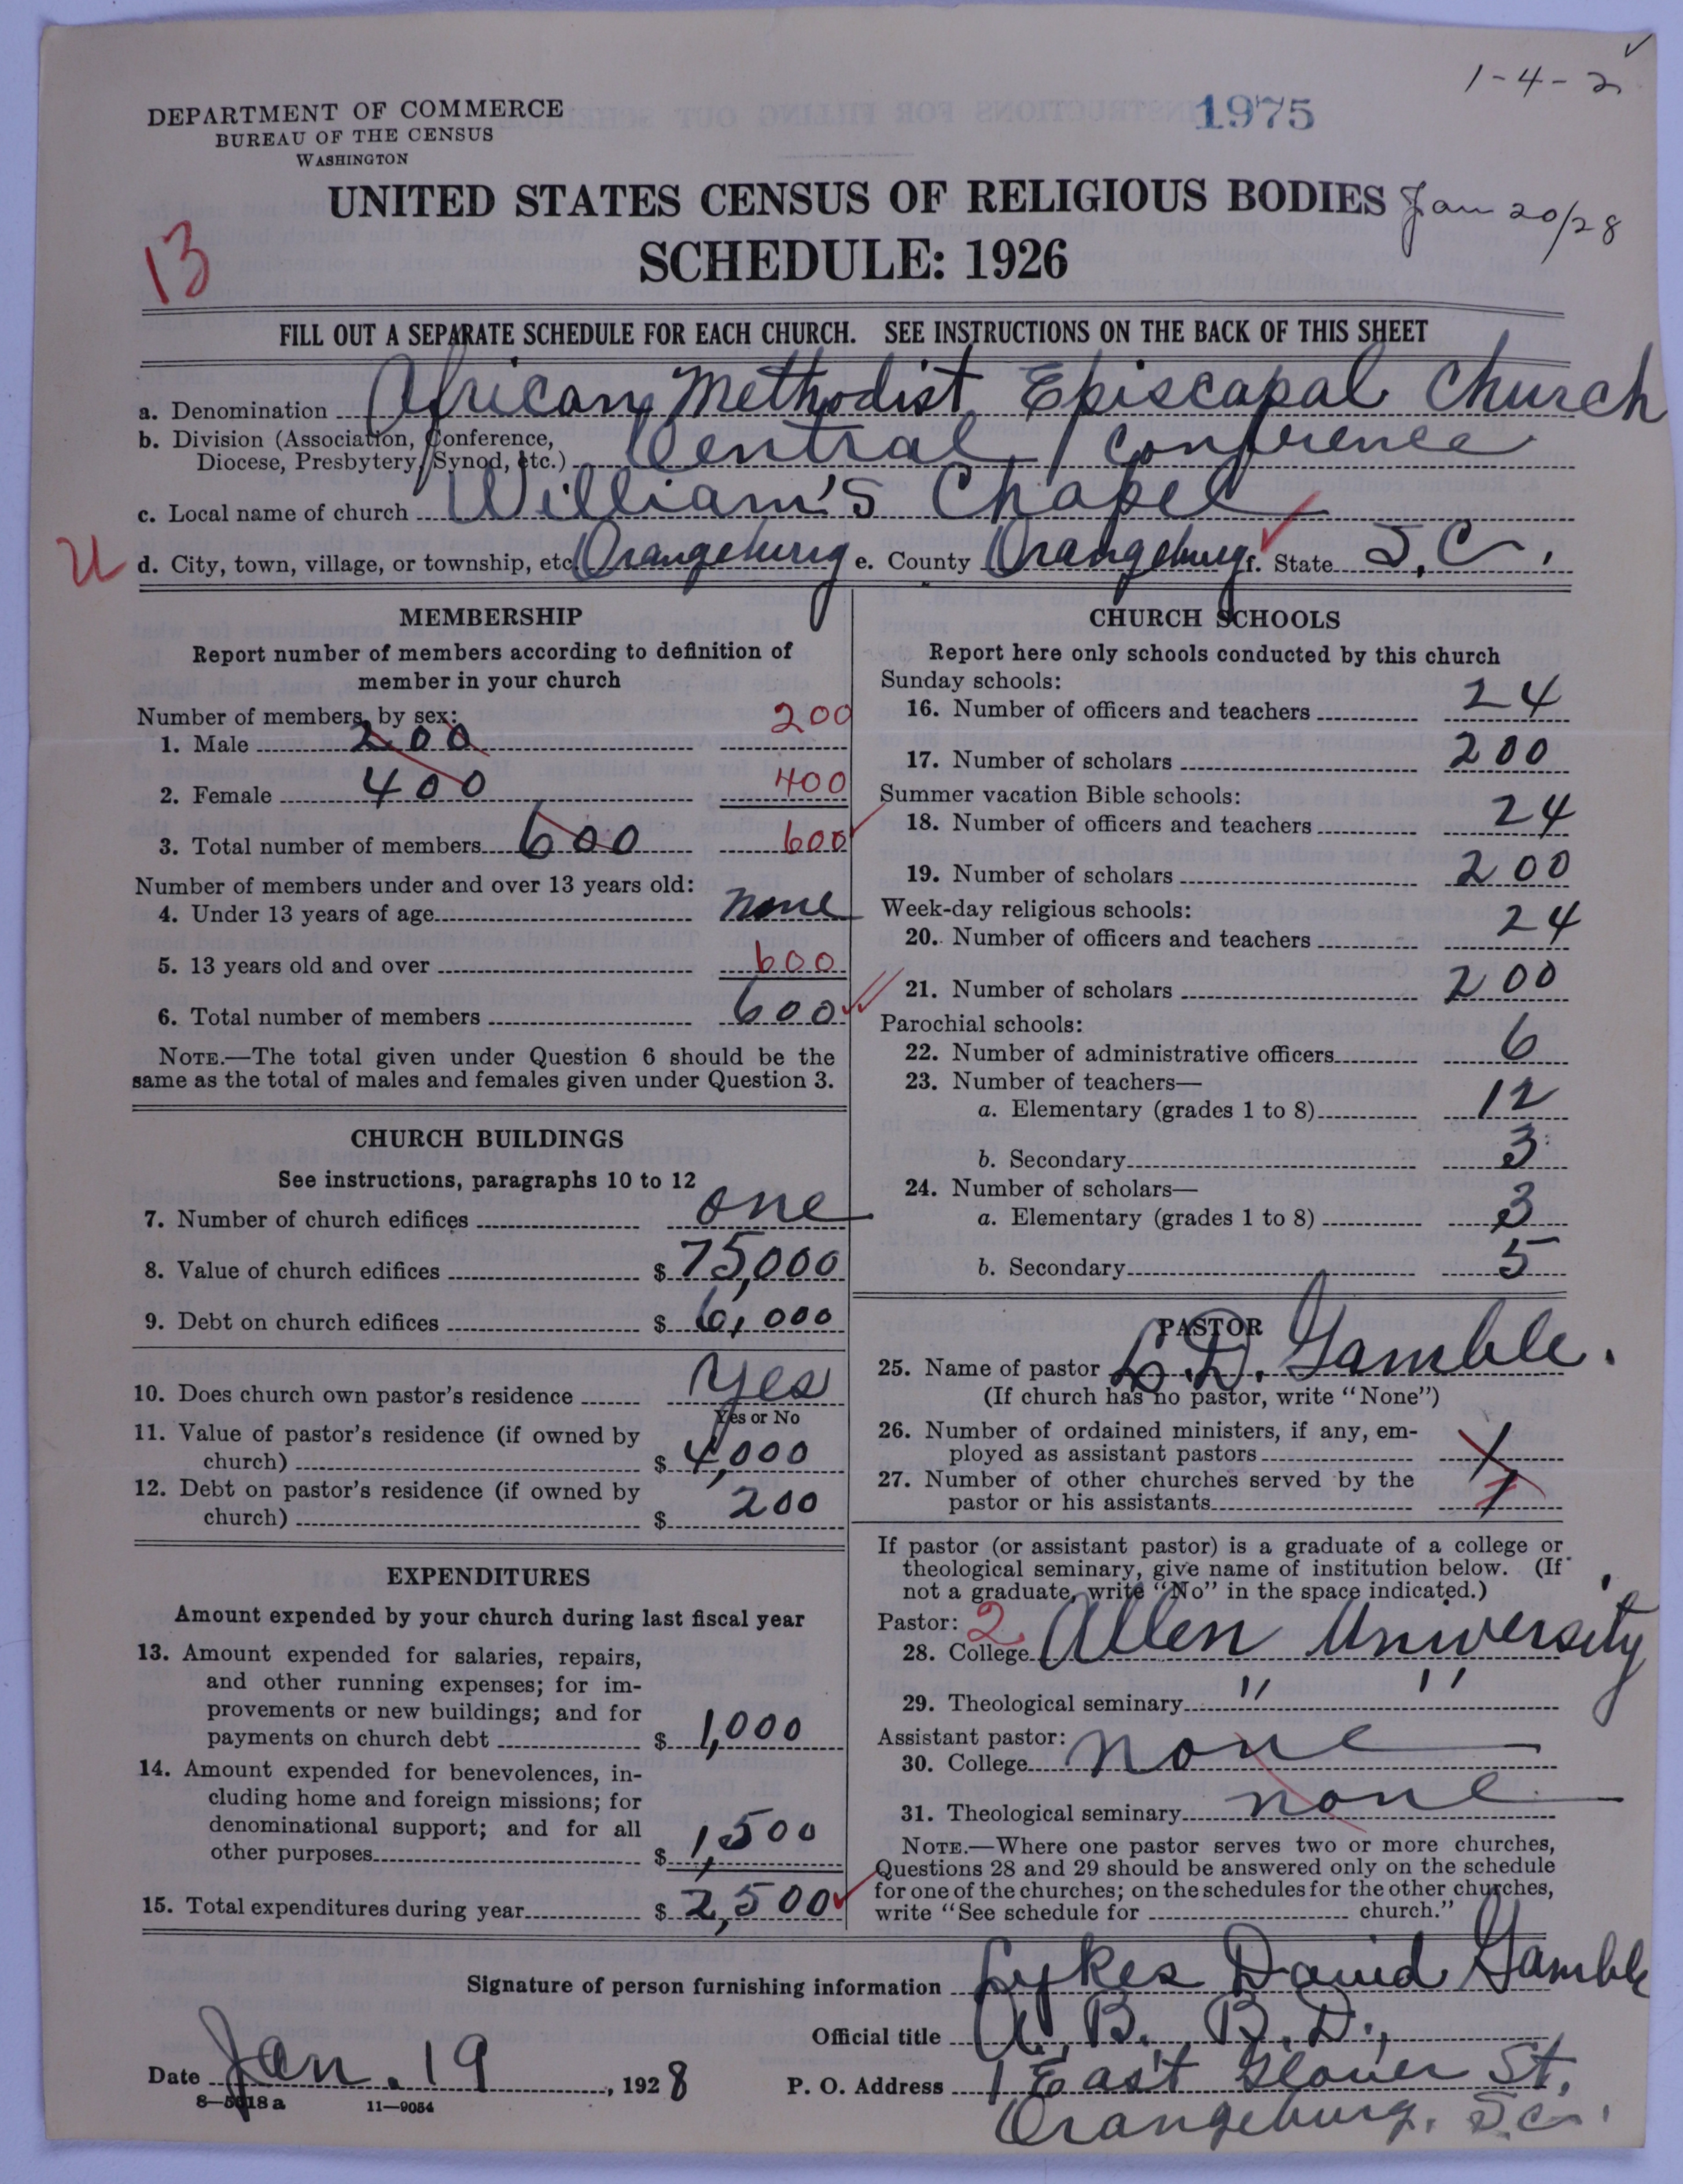 1-4-2
DEPARTMENT OF COMMERCE
BUREAU OF THE CENSUS
WASHINGTON
1975
UNITED STATES CENSUS OF RELIGIOUS BODIES
Jan 20/28
SCHEDULE: 1926
13
FILL OUT A SEPARATE SCHEDULE FOR EACH CHURCH. SEE INSTRUCTIONS ON THE BACK OF THIS SHEET
a. Denomination African Methodist Episcapal Church
b. Division (Association, Conference,
Diocese, Presbytery, Synod, etc.) Central Conference
c. Local name of church William's Chapel
U d. City, town, village, or township, etc. Orangeburg e. County Orangeburg f. State S.C.
MEMBERSHIP
Report number of members according to definition of
member in your church
Number of members, by sex:
1. Male 200 200
2. Female 400 400
3. Total number of members 600 600
Number of members under and over 13 years old:
4. Under 13 years of age none
5. 13 years old and over 600
6. Total number of members 600
NOTE.—The total given under Question 6 should be the
same as the total of males and females given under Question 3.
CHURCH BUILDINGS
See instructions, paragraphs 10 to 12
7. Number of church edifices one
8. Value of church edifices $ 75,000
9. Debt on church edifices $ 6,000
10. Does church own pastor's residence Yes
Yes or No
11. Value of pastor's residence (if owned by
church) $ 4,000
12. Debt on pastor's residence (if owned by
church) $ 200
EXPENDITURES
Amount expended by your church during last fiscal year
13. Amount expended for salaries, repairs,
and other running expenses; for im-
provements or new buildings; and for
payments on church debt $ 1,000
14. Amount expended for benevolences, in-
cluding home and foreign missions; for
denominational support; and for all
other purposes $ 1,500
15. Total expenditures during year $ 2,500
CHURCH SCHOOLS
Report here only schools conducted by this church
Sunday schools:
16. Number of officers and teachers 24
17. Number of scholars 200
Summer vacation Bible schools:
18. Number of officers and teachers 24
19. Number of scholars 200
Week-day religious schools:
20. Number of officers and teachers 24
21. Number of scholars 200
Parochial schools:
22. Number of administrative officers 6
23. Number of teachers—
a. Elementary (grades 1 to 8) 12
b. Secondary 3
24. Number of scholars—
a. Elementary (grades 1 to 8) 3
b. Secondary 5
PASTOR
25. Name of pastor L.D. Gamble.
(If church has no pastor, write "None")
26. Number of ordained ministers, if any, em-
ployed as assistant pastors 1
27. Number of other churches served by the
pastor or his assistants 1
If pastor (or assistant pastor) is a graduate of a college or
theological seminary, give name of institution below. (If
not a graduate, write "No" in the space indicated.)
Pastor: 2
28. College Allen University
29. Theological seminary " "
Assistant pastor:
30. College none
31. Theological seminary none
NOTE.—Where one pastor serves two or more churches,
Questions 28 and 29 should be answered only on the schedule
for one of the churches; on the schedules for the other churches,
write "See schedule for church."
Signature of person furnishing information Lykes David Gamble
Official title A. B. B. D.,
Date Jan. 19, 1928 P. O. Address 1 East Glover St.
8—5018a 11—9054
Orangeburg, S.C.